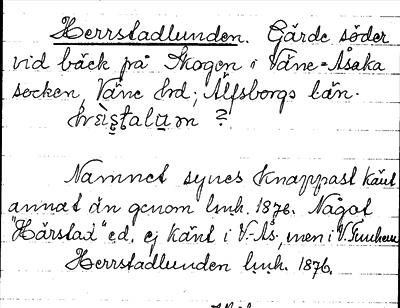 Herrstadlunden. Gärde söder
vid bäck på Skogen i Väne-Åsaka
socken, Väne hrd; Älfsborgs län.
Namnet synes knappast känt
annat än genom lmk. 1876. Något
"Härstad" ed. ej känt i V.-Ås., men i V. Tunhem
Herrstadlunden lmk. 1876.